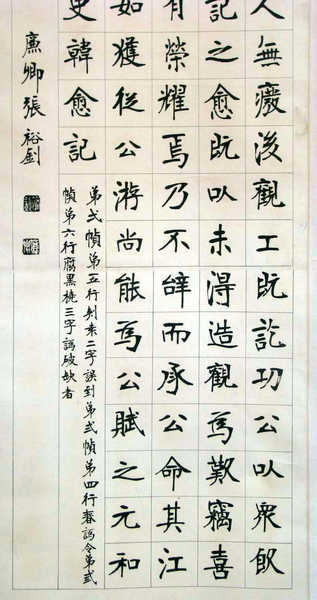 人無癈後觀工既訖功公以衆飲
記之愈既以未得造觀為歎竊喜
有榮耀焉乃不辭而承公命其江
如獲從公游尚能為公賦之元和
史韓愈記
弟弍幀弟五行來二字誤到弟弍幀弟四行春誤令弟弍
幀弟六行腐黑橈三字誤破缺者
廉卿張裕釗